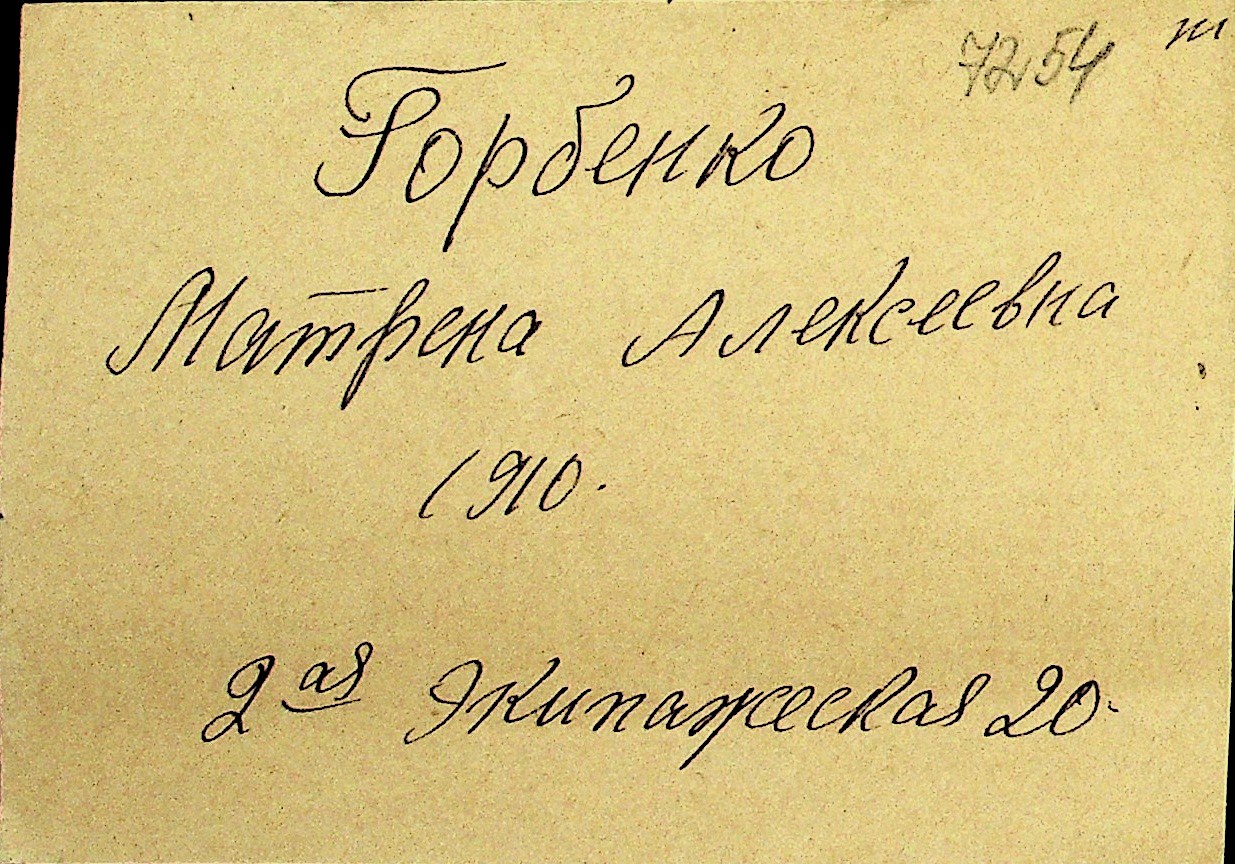 7254 т
Горбенко
Матрена Алексеевна
1910.
2ая Экипажеская 20.